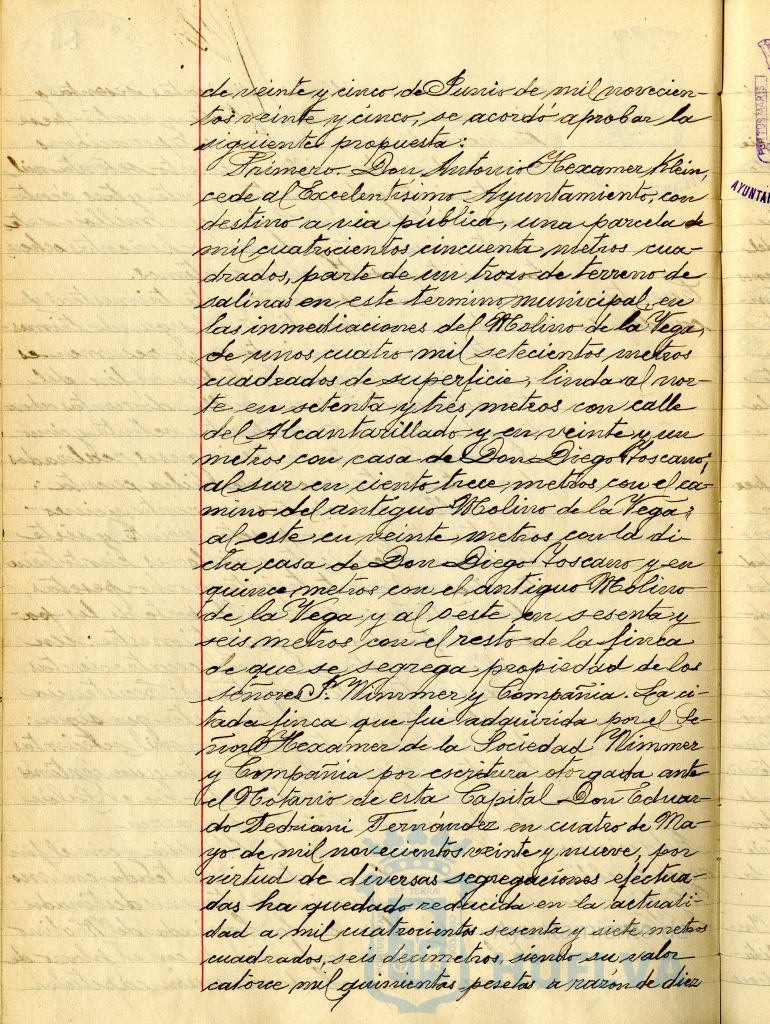 de veinte y cinco de Junio de mil novecien-
tos veinte y cinco, se acordó aprobar la
siguiente propuesta:
Primero. Don Antonio Hexamer Klein,
cede al Excelentísimo Ayuntamiento, con
destino a via pública, una parcela de
mil cuatrocientos cincuenta metros cua-
drados, parte de un trozo de terreno de
salinas en este termino municipal, en
las inmediaciones del Molino de la Vega,
de unos cuatro mil setecientos metros
cuadrados de superficie, linda al nor-
te en setenta y tres metros con calle
del Alcantarillado y en veinte y un
metros con casa de Don Diego Toscano;
al sur en ciento trece metros con el ca-
mino del antiguo Molino de la Vega;
al este en veinte metros con la di-
cha casa de Don Diego Toscano y en
quince metros con el antiguo Molino
de la Vega y al oeste en sesenta y
seis metros con el resto de la finca
de que se segrega propiedad de los
señores P. Wimmer y Compañia. La ci-
tada finca que fué adquirida por el Se-
ñor Hexamer de la Sociedad Wimmer
y Compañia por escritura otorgada ante
el Notario de esta Capital Don Eduar-
do Fedriani Fernández en cuatro de Ma-
yo de mil novecientos veinte y nueve, por
virtud de diversas segregaciones efectua-
das ha quedado reducida en la actuali-
dad a mil cuatrocientos sesenta y siete metros
cuadrados, seis decimetros, siendo su valor
catorce mil quinientas pesetas a razón de diez
HUELVA
AYUNTA